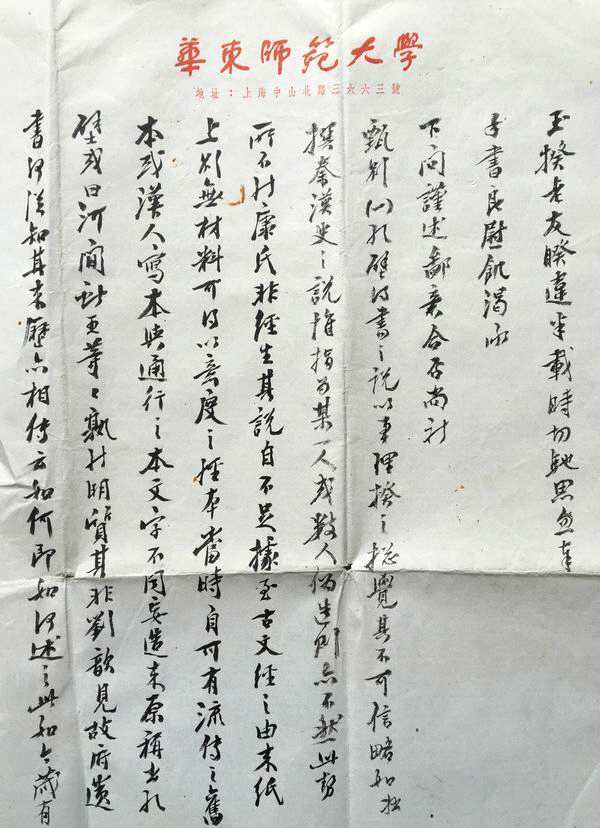 華東師範大學
地址：上海中山北路三六六三號
玉揆老友睽違半載時切馳思忽奉
手書良慰飢渴承
下問謹述鄙衷合否尚祈
甄別以孔壁得書之說以事理揆之總覺其不可信略如拙
撰秦漢史之說推指為某一人或數人偽造則亦不然此
所不料康氏非經生其說自不足據至古文經之由來紙
上別無材料可得以意度之經本當時自可有流傳之舊
本或漢人寫本與通行之本文字不同妄造來原稱出孔
壁或曰河間獻王等之孰明質其非劉歆見故府遺
書何從知其來歷亦相傳云如何即如何述之此如今歲有